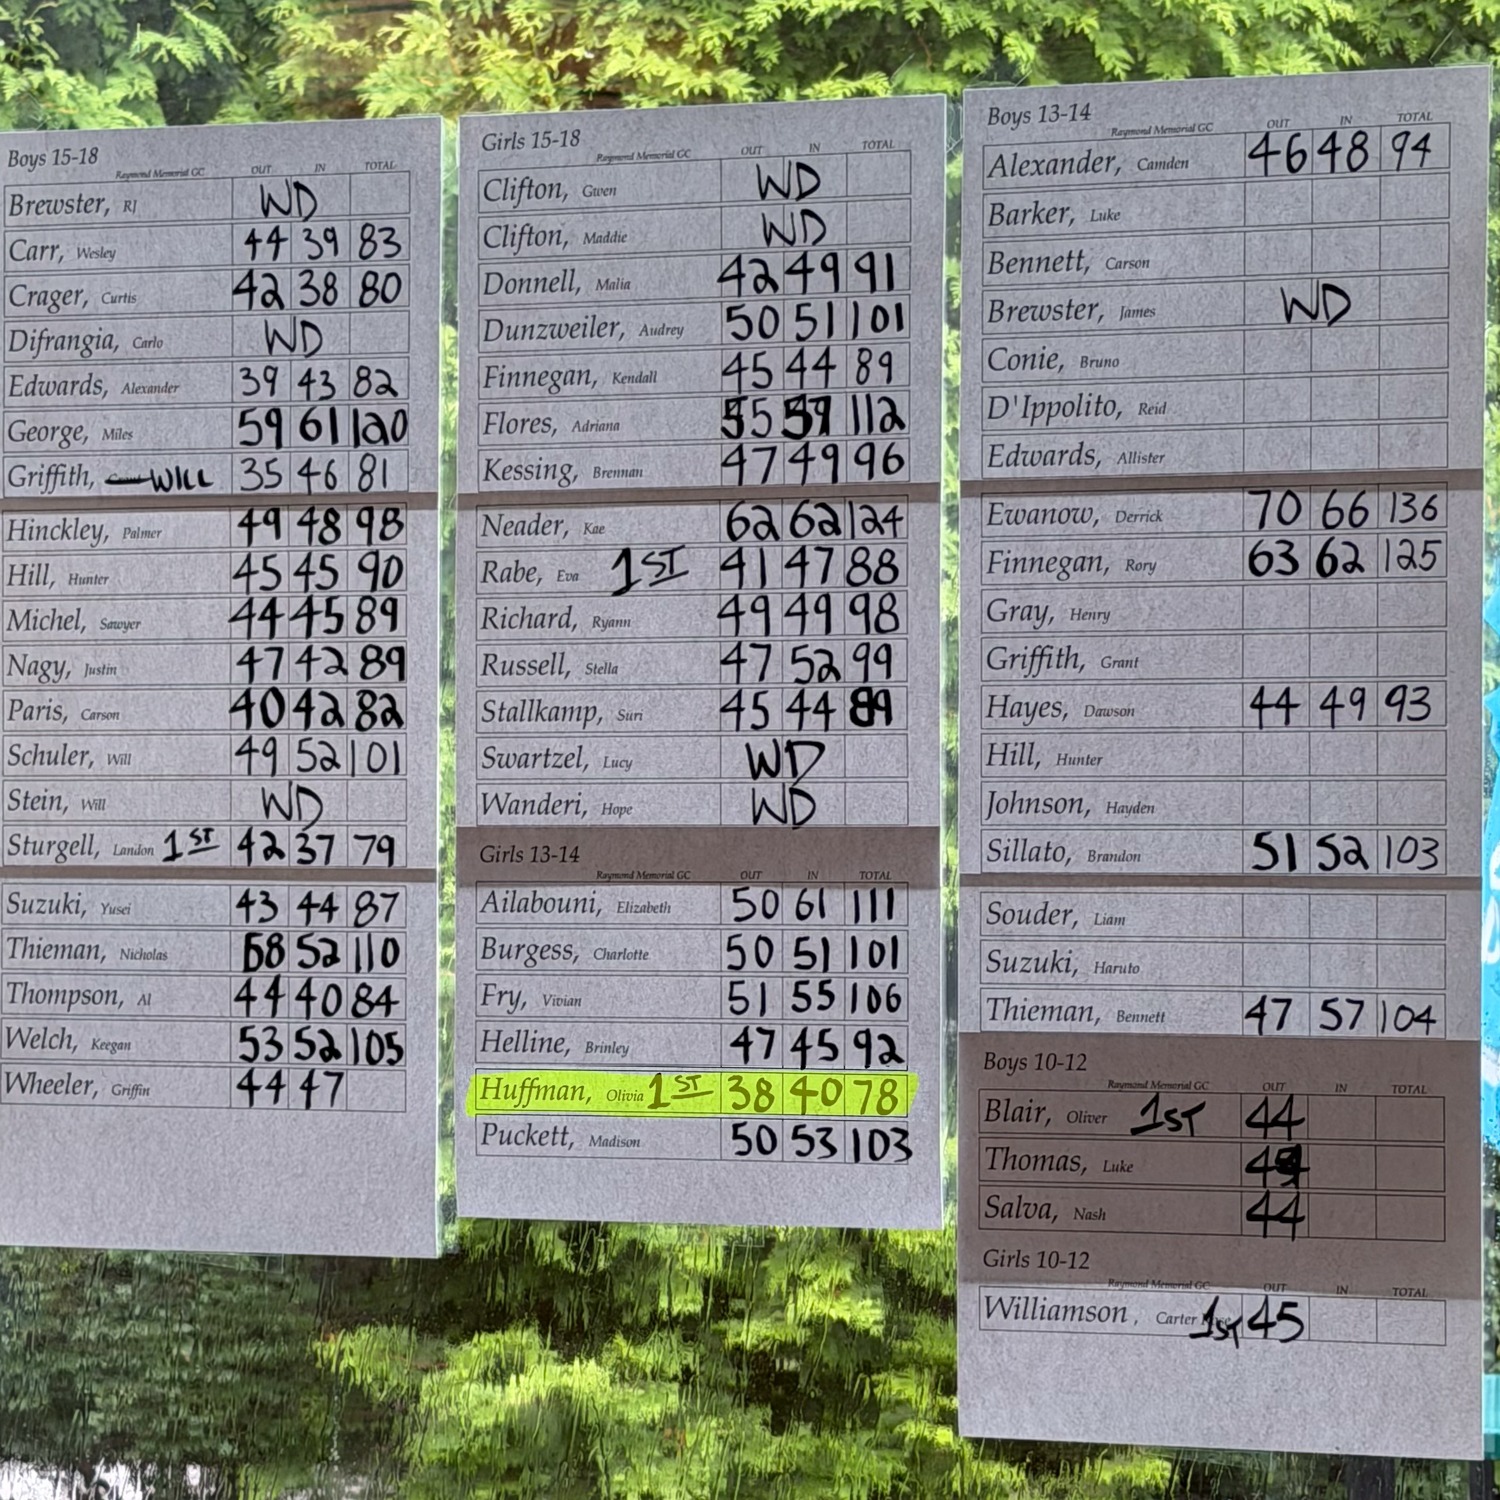 Boys 15-18
Raymond Memorial GC OUT IN TOTAL
Brewster, RJ WD
Carr, Wesley 44 39 83
Crager, Curtis 42 38 80
Difrangia, Carlo WD
Edwards, Alexander 39 43 82
George, Miles 59 61 120
Griffith, WILL 35 46 81
Hinckley, Palmer 49 48 98
Hill, Hunter 45 45 90
Michel, Sawyer 44 45 89
Nagy, Justin 47 42 89
Paris, Carson 40 42 82
Schuler, Will 49 52 101
Stein, Will WD
Sturgell, Landon 1ST 42 37 79
Suzuki, Yusei 43 44 87
Thieman, Nicholas 58 52 110
Thompson, Al 44 40 84
Welch, Keegan 53 52 105
Wheeler, Griffin 44 47
Girls 15-18
Raymond Memorial GC OUT IN TOTAL
Clifton, Gwen WD
Clifton, Maddie WD
Donnell, Malia 42 49 91
Dunzweiler, Audrey 50 51 101
Finnegan, Kendall 45 44 89
Flores, Adriana 55 57 112
Kessing, Brennan 47 49 96
Neader, Kae 62 62 124
Rabe, Eva 1ST 41 47 88
Richard, Ryann 49 49 98
Russell, Stella 47 52 99
Stallkamp, Suri 45 44 89
Swartzel, Lucy WD
Wanderi, Hope WD
Girls 13-14
Raymond Memorial GC OUT IN TOTAL
Ailabouni, Elizabeth 50 61 111
Burgess, Charlotte 50 51 101
Fry, Vivian 51 55 106
Helline, Brinley 47 45 92
Huffman, Olivia 1ST 38 40 78
Puckett, Madison 50 53 103
Boys 13-14
Raymond Memorial GC OUT IN TOTAL
Alexander, Camden 46 48 94
Barker, Luke
Bennett, Carson
Brewster, James WD
Conie, Bruno
D'Ippolito, Reid
Edwards, Allister
Ewanow, Derrick 70 66 136
Finnegan, Rory 63 62 125
Gray, Henry
Griffith, Grant
Hayes, Dawson 44 49 93
Hill, Hunter
Johnson, Hayden
Sillato, Brandon 51 52 103
Souder, Liam
Suzuki, Haruto
Thieman, Bennett 47 57 104
Boys 10-12
Raymond Memorial GC OUT IN TOTAL
Blair, Oliver 1ST 44
Thomas, Luke
Salva, Nash 44
Girls 10-12
Raymond Memorial GC OUT IN TOTAL
Williamson , Carter 1ST 45